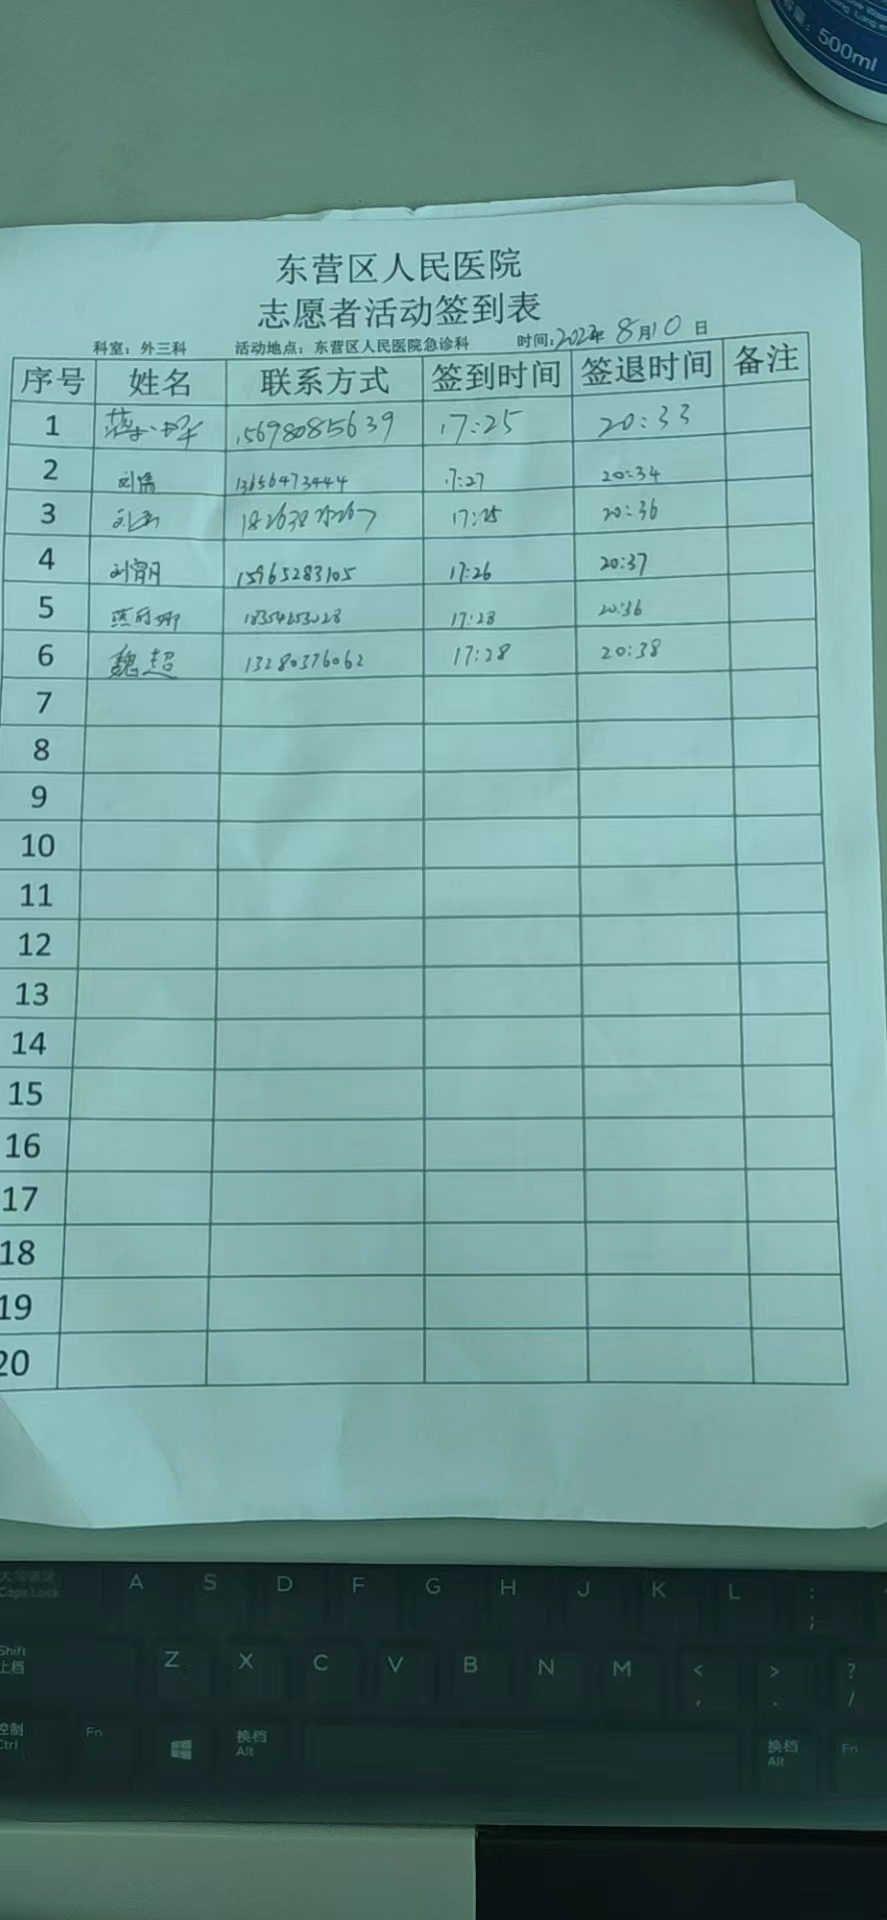 500ml
东营区人民医院
志愿者活动签到表
科室：外三科 活动地点：东营区人民医院急诊科 时间：2022年8月10日
序号 姓名 联系方式 签到时间 签退时间 备注
1 15698085639 17:25 20:33
2 13656473444 17:27 20:34
3 刘 17:25 20:36
4 刘宵月 15965283105 17:26 20:37
5 17:28 20:36
6 魏超 13280376062 17:28 20:38
7
8
9
10
11
12
13
14
15
16
17
18
19
20
CapsLock A S D F G H J K L : ;
Shift 上档 Z X C V B N M < , > . ? /
控制 Ctrl Fn 换档 Alt 换档 Alt Fn